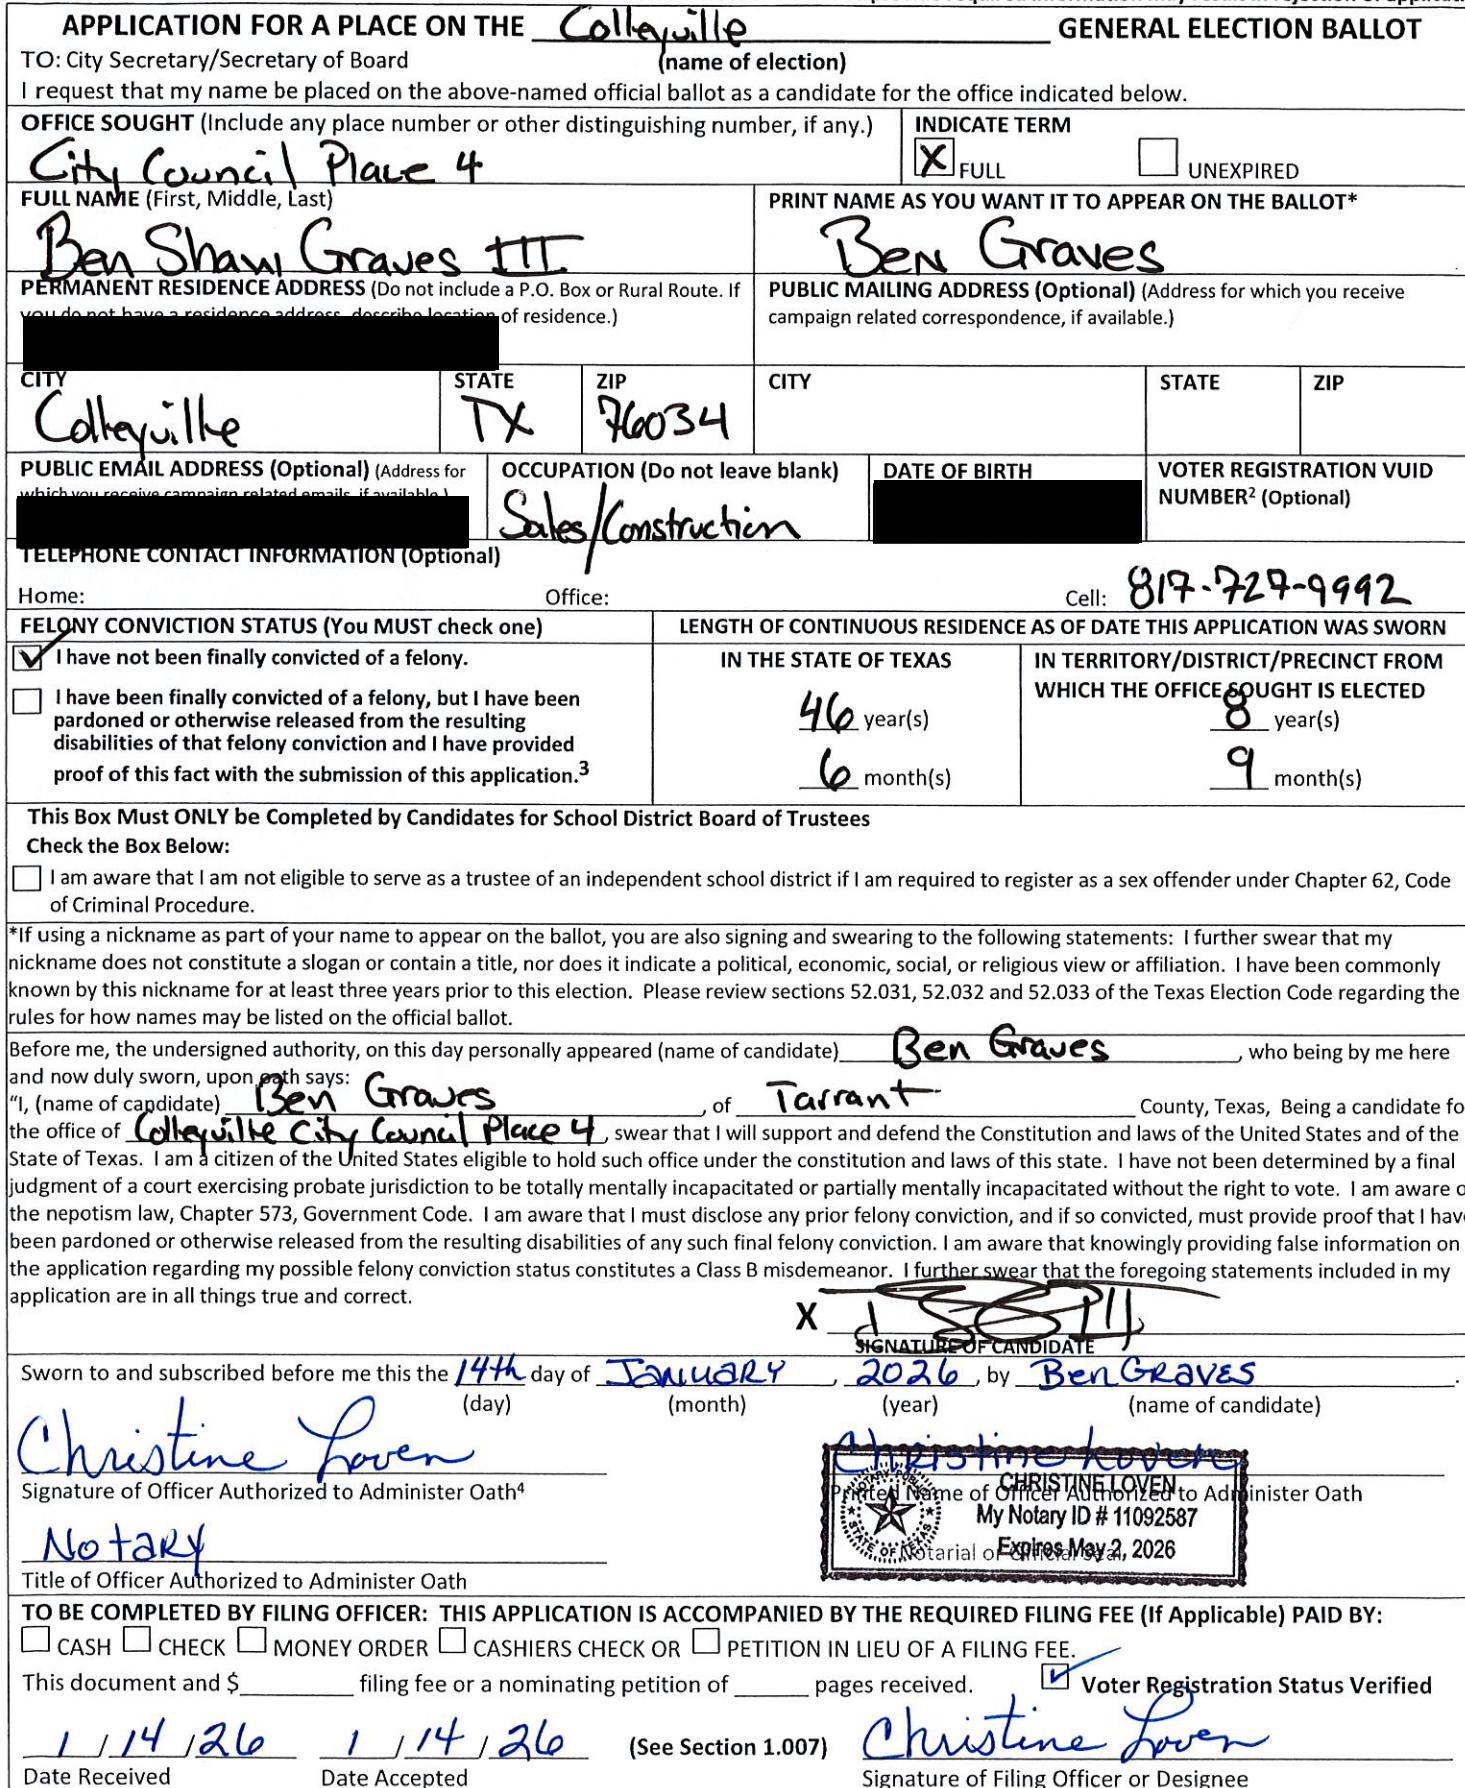 APPLICATION FOR A PLACE ON THE Colleyville GENERAL ELECTION BALLOT
TO: City Secretary/Secretary of Board (name of election)
I request that my name be placed on the above-named official ballot as a candidate for the office indicated below.
OFFICE SOUGHT (Include any place number or other distinguishing number, if any.) INDICATE TERM
City Council Place 4 X FULL UNEXPIRED
FULL NAME (First, Middle, Last) PRINT NAME AS YOU WANT IT TO APPEAR ON THE BALLOT*
Ben Shaw Graves III Ben Graves
PERMANENT RESIDENCE ADDRESS (Do not include a P.O. Box or Rural Route. If PUBLIC MAILING ADDRESS (Optional) (Address for which you receive
you do not have a residence address, describe location of residence.) campaign related correspondence, if available.)
CITY STATE ZIP CITY STATE ZIP
Colleyville TX 76034
PUBLIC EMAIL ADDRESS (Optional) (Address for OCCUPATION (Do not leave blank) DATE OF BIRTH VOTER REGISTRATION VUID
which you receive campaign related emails, if available.) NUMBER² (Optional)
Sales/Construction
TELEPHONE CONTACT INFORMATION (Optional)
Home: Office: Cell: 817-727-9992
FELONY CONVICTION STATUS (You MUST check one) LENGTH OF CONTINUOUS RESIDENCE AS OF DATE THIS APPLICATION WAS SWORN
I have not been finally convicted of a felony. IN THE STATE OF TEXAS IN TERRITORY/DISTRICT/PRECINCT FROM
WHICH THE OFFICE SOUGHT IS ELECTED
I have been finally convicted of a felony, but I have been
pardoned or otherwise released from the resulting 46 year(s) 8 year(s)
disabilities of that felony conviction and I have provided
proof of this fact with the submission of this application.³ 6 month(s) 9 month(s)
This Box Must ONLY be Completed by Candidates for School District Board of Trustees
Check the Box Below:
I am aware that I am not eligible to serve as a trustee of an independent school district if I am required to register as a sex offender under Chapter 62, Code
of Criminal Procedure.
*If using a nickname as part of your name to appear on the ballot, you are also signing and swearing to the following statements: I further swear that my
nickname does not constitute a slogan or contain a title, nor does it indicate a political, economic, social, or religious view or affiliation. I have been commonly
known by this nickname for at least three years prior to this election. Please review sections 52.031, 52.032 and 52.033 of the Texas Election Code regarding the
rules for how names may be listed on the official ballot.
Before me, the undersigned authority, on this day personally appeared (name of candidate) Ben Graves, who being by me here
and now duly sworn, upon oath says:
"I, (name of candidate) Ben Graves, of Tarrant County, Texas, Being a candidate fo
the office of Colleyville City Council Place 4, swear that I will support and defend the Constitution and laws of the United States and of the
State of Texas. I am a citizen of the United States eligible to hold such office under the constitution and laws of this state. I have not been determined by a final
judgment of a court exercising probate jurisdiction to be totally mentally incapacitated or partially mentally incapacitated without the right to vote. I am aware o
the nepotism law, Chapter 573, Government Code. I am aware that I must disclose any prior felony conviction, and if so convicted, must provide proof that I have
been pardoned or otherwise released from the resulting disabilities of any such final felony conviction. I am aware that knowingly providing false information on
the application regarding my possible felony conviction status constitutes a Class B misdemeanor. I further swear that the foregoing statements included in my
application are in all things true and correct.
X
SIGNATURE OF CANDIDATE
Sworn to and subscribed before me this the 14th day of January, 2026, by Ben Graves.
(day) (month) (year) (name of candidate)
Christine Loven Christine Loven
Signature of Officer Authorized to Administer Oath⁴ Printed Name of Officer Authorized to Administer Oath
CHRISTINE LOVEN
My Notary ID # 11092587
Expires May 2, 2026
NOTARY PUBLIC STATE OF TEXAS
Notary
Notarial or Official Seal
Title of Officer Authorized to Administer Oath
TO BE COMPLETED BY FILING OFFICER: THIS APPLICATION IS ACCOMPANIED BY THE REQUIRED FILING FEE (If Applicable) PAID BY:
CASH CHECK MONEY ORDER CASHIERS CHECK OR PETITION IN LIEU OF A FILING FEE.
This document and $ filing fee or a nominating petition of pages received. Voter Registration Status Verified
1/14/26 1/14/26 (See Section 1.007) Christine Loven
Date Received Date Accepted Signature of Filing Officer or Designee